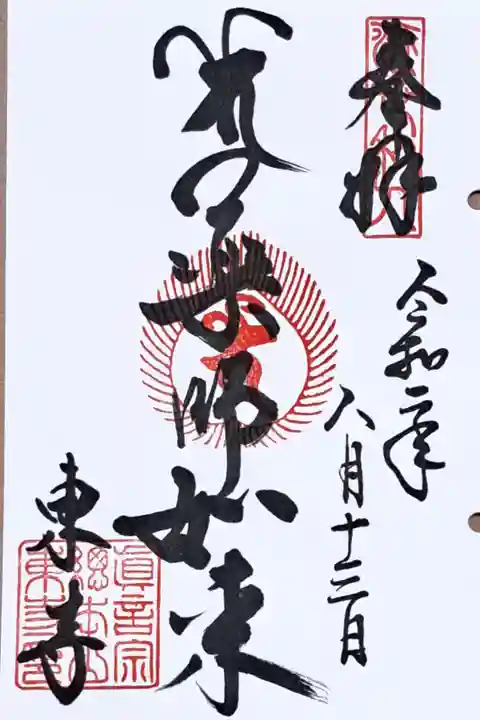 奉拝
令和二年
八月十三日
薬師如来
東寺
眞言宗
總本山